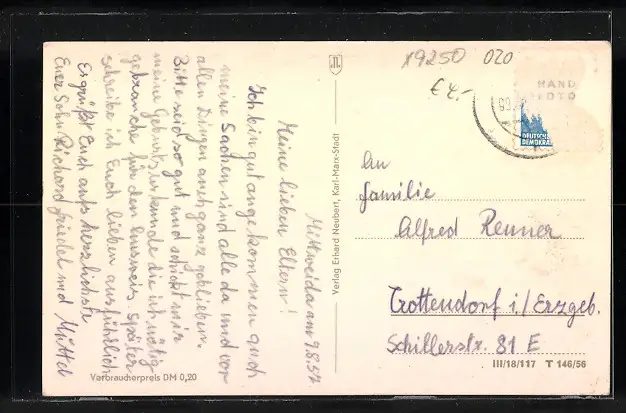 Mittweida am 9.8.57
Meine lieben Eltern!
Ich bin gut angekommen auch
meine Sachen sind alle da und vor
allen Dingen auch ganz geblieben.
Bitte seid so gut und schickt mir
meine Geburtsurkunde die ich nötig
gebrauche für den Ausweis später
schreibe ich Euch lieben ausführlich
Es grüßt Euch aufs herzlichste
Euer Sohn Richard friedel und Muttel
Verbraucherpreis DM 0,20
Verlag Erhard Neubert, Karl-Marx-Stadt
x9250 020
€ 4,-
HAND
FOTO
DEUTSCHE
DEMOKRA
An
Familie
Alfred Renner
Crottendorf i./Erzgeb.
Schillerstr. 81 E
III/18/117 T 146/56